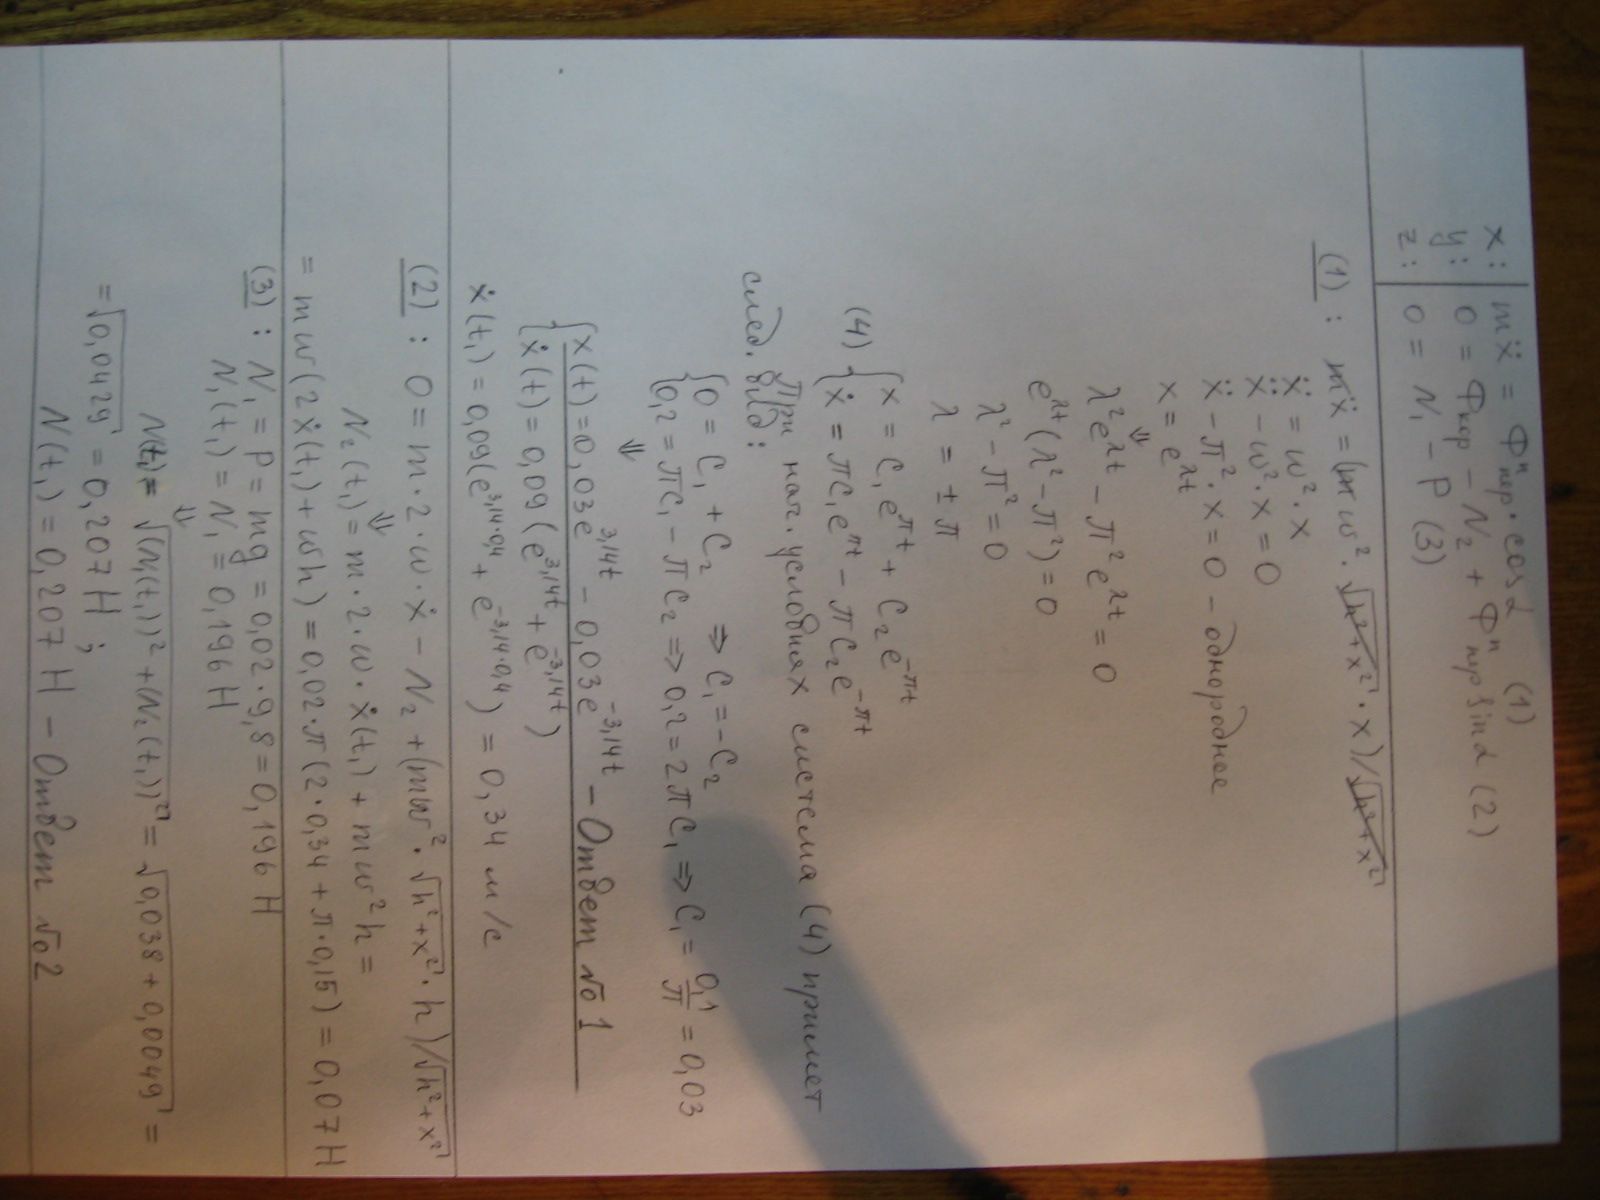 x: mẍ = Фⁿпер · cosα (1)
y: 0 = Фкор - N₂ + Фⁿпер sinα (2)
z: 0 = N₁ - P (3)
(1): mẍ = (mω² · √(h²+x²) · x)/√(h²+x²)
ẍ = ω² · x
ẍ - ω² · x = 0
ẍ - π² · x = 0 - однородное
x = e^λt
⇓
λ²e^λt - π²e^λt = 0
e^λt(λ² - π²) = 0
λ² - π² = 0
λ = ± π
(4) { x = C₁e^πt + C₂e^-πt
ẋ = πC₁e^πt - πC₂e^-πt
При нач. условиях система (4) примет
след. вид:
{ 0 = C₁ + C₂ ⇒ C₁ = -C₂
0,2 = πC₁ - πC₂ ⇒ 0,2 = 2πC₁ ⇒ C₁ = 0,1/π = 0,03
⇓
{ x(t) = 0,03e^3,14t - 0,03e^-3,14t - Ответ №1
ẋ(t) = 0,09(e^3,14t + e^-3,14t)
ẋ(t₁) = 0,09(e^3,14·0,4 + e^-3,14·0,4) = 0,34 м/с
(2): 0 = m · 2 · ω · ẋ - N₂ + (mω² · √(h²+x²) · h)/√(h²+x²)
⇓
N₂(t₁) = m · 2 · ω · ẋ(t₁) + mω²h =
= mω(2ẋ(t₁) + ωh) = 0,02 · π(2 · 0,34 + π · 0,15) = 0,07 Н
(3): N₁ = P = mg = 0,02 · 9,8 = 0,196 Н
N₁(t₁) = N₁ = 0,196 Н
⇓
N(t₁) = √((N₁(t₁))² + (N₂(t₁))²) = √(0,038 + 0,0049) =
= √0,0429 = 0,207 Н;
N(t₁) = 0,207 Н - Ответ №2